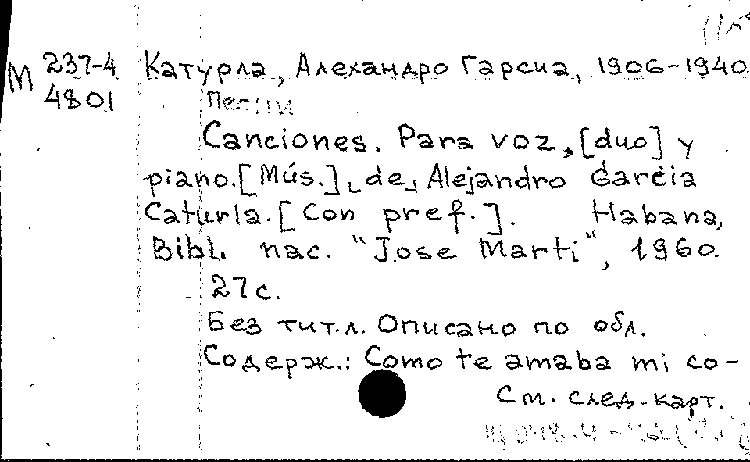 М 237-4 Катурла, Алехандро Гарсиа, 1906-1940
4801 Песни
Canciones. Para voz, [duo] y
piano. [Mús.] de Alejandro Garcia
Caturla. [Con pref.]. Habana,
Bibl. nac. "Jose Marti", 1960.
27 с.
Без тит. л. Описано по обл.
Содерж.: Como te amaba mi co-
См. след. карт.